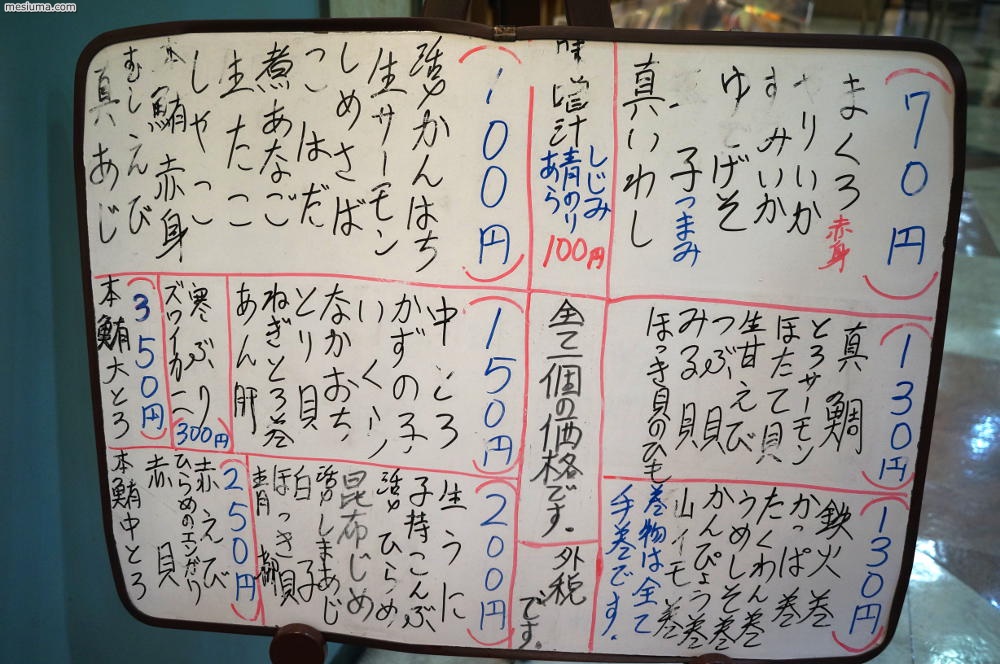 mesiuma.com
70円
まくろ 赤身
やりいか
すみいか
ゆでげそ
子 つまみ
真いわし
味噌汁
しじみ
青のり
あら
100円
100円
活〆かんはち
生サーモン
しめさば
こはだ
煮あなご
生たこ
しゃこ
本鮪 赤身
むしえび
真あじ
130円
真鯛
とろサーモン
ほたて貝
生甘えび
つぶ貝
みる貝
ほっき貝のひも
全て一個の価格です。
150円
中とろ
かずの子
いくら
なかおち
とり貝
ねぎとろ巻
あん肝
300円
寒ぶり
ズワイカニ
350円
本鮪大とろ
130円
鉄火巻
かっぱ巻
たくわん巻
うめしそ巻
かんぴょう巻
山イモ巻
巻物は全て
手巻です。
外税
です。
200円
生うに
子持こんぶ
活〆ひらめ
昆布じめ
活〆しまあじ
白子
ほっき貝
250円
赤えび
ひらめのエンガワ
赤貝
本鮪中とろ